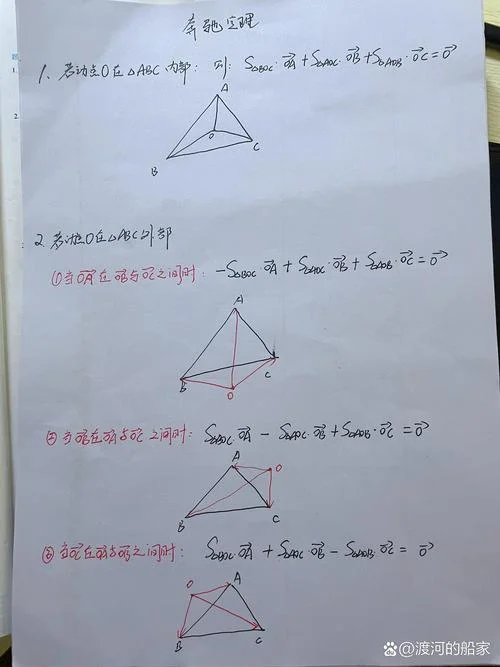 奔驰定理
1. 若动点O在△ABC内部: 则: S△BOC·OA→+S△AOC·OB→+S△AOB·OC→=0→
A
O
B
C
2. 若动点O在△ABC外部
①当OA→在OB→与OC→之间时: -S△BOC·OA→+S△AOC·OB→+S△AOB·OC→=0→
A
B
C
O
②当OB→在OA→与OC→之间时: S△BOC·OA→-S△AOC·OB→+S△AOB·OC→=0→
A
O
B
C
③当OC→在OA→与OB→之间时: S△BOC·OA→+S△AOC·OB→-S△AOB·OC→=0→
O
A
B
C
渡河的船家